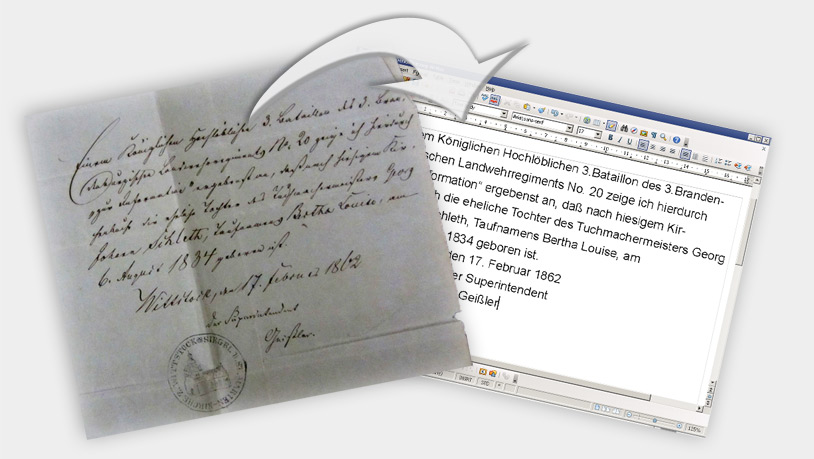 Einem Königlichen Hochlöblichen 3. Bataillon des 3. Bran-
denburgischen Landwehrregiments No. 20 zeige ich hierdurch
„zur Information“ ergebenst an, daß nach hiesigem Kir-
chenbuch die eheliche Tochter des Tuchmachermeisters Georg
Johann Schleth, Taufnamens Bertha Louise, am
6. August 1834 geboren ist.
Wittstock, den 17. Februar 1862
der Superintendent
Geißler.
WITTSTOCK SIEGEL D. ST. MARIEN-KIRCHE Z.
Help
17
B I U
em Königlichen Hochlöblichen 3.Bataillon des 3.Branden-
ischen Landwehrregiments No. 20 zeige ich hierdurch
formation“ ergebenst an, daß nach hiesigem Kir-
h die eheliche Tochter des Tuchmachermeisters Georg
hleth, Taufnamens Bertha Louise, am
1834 geboren ist.
den 17. Februar 1862
er Superintendent
Geißler
INSRT STD
125%